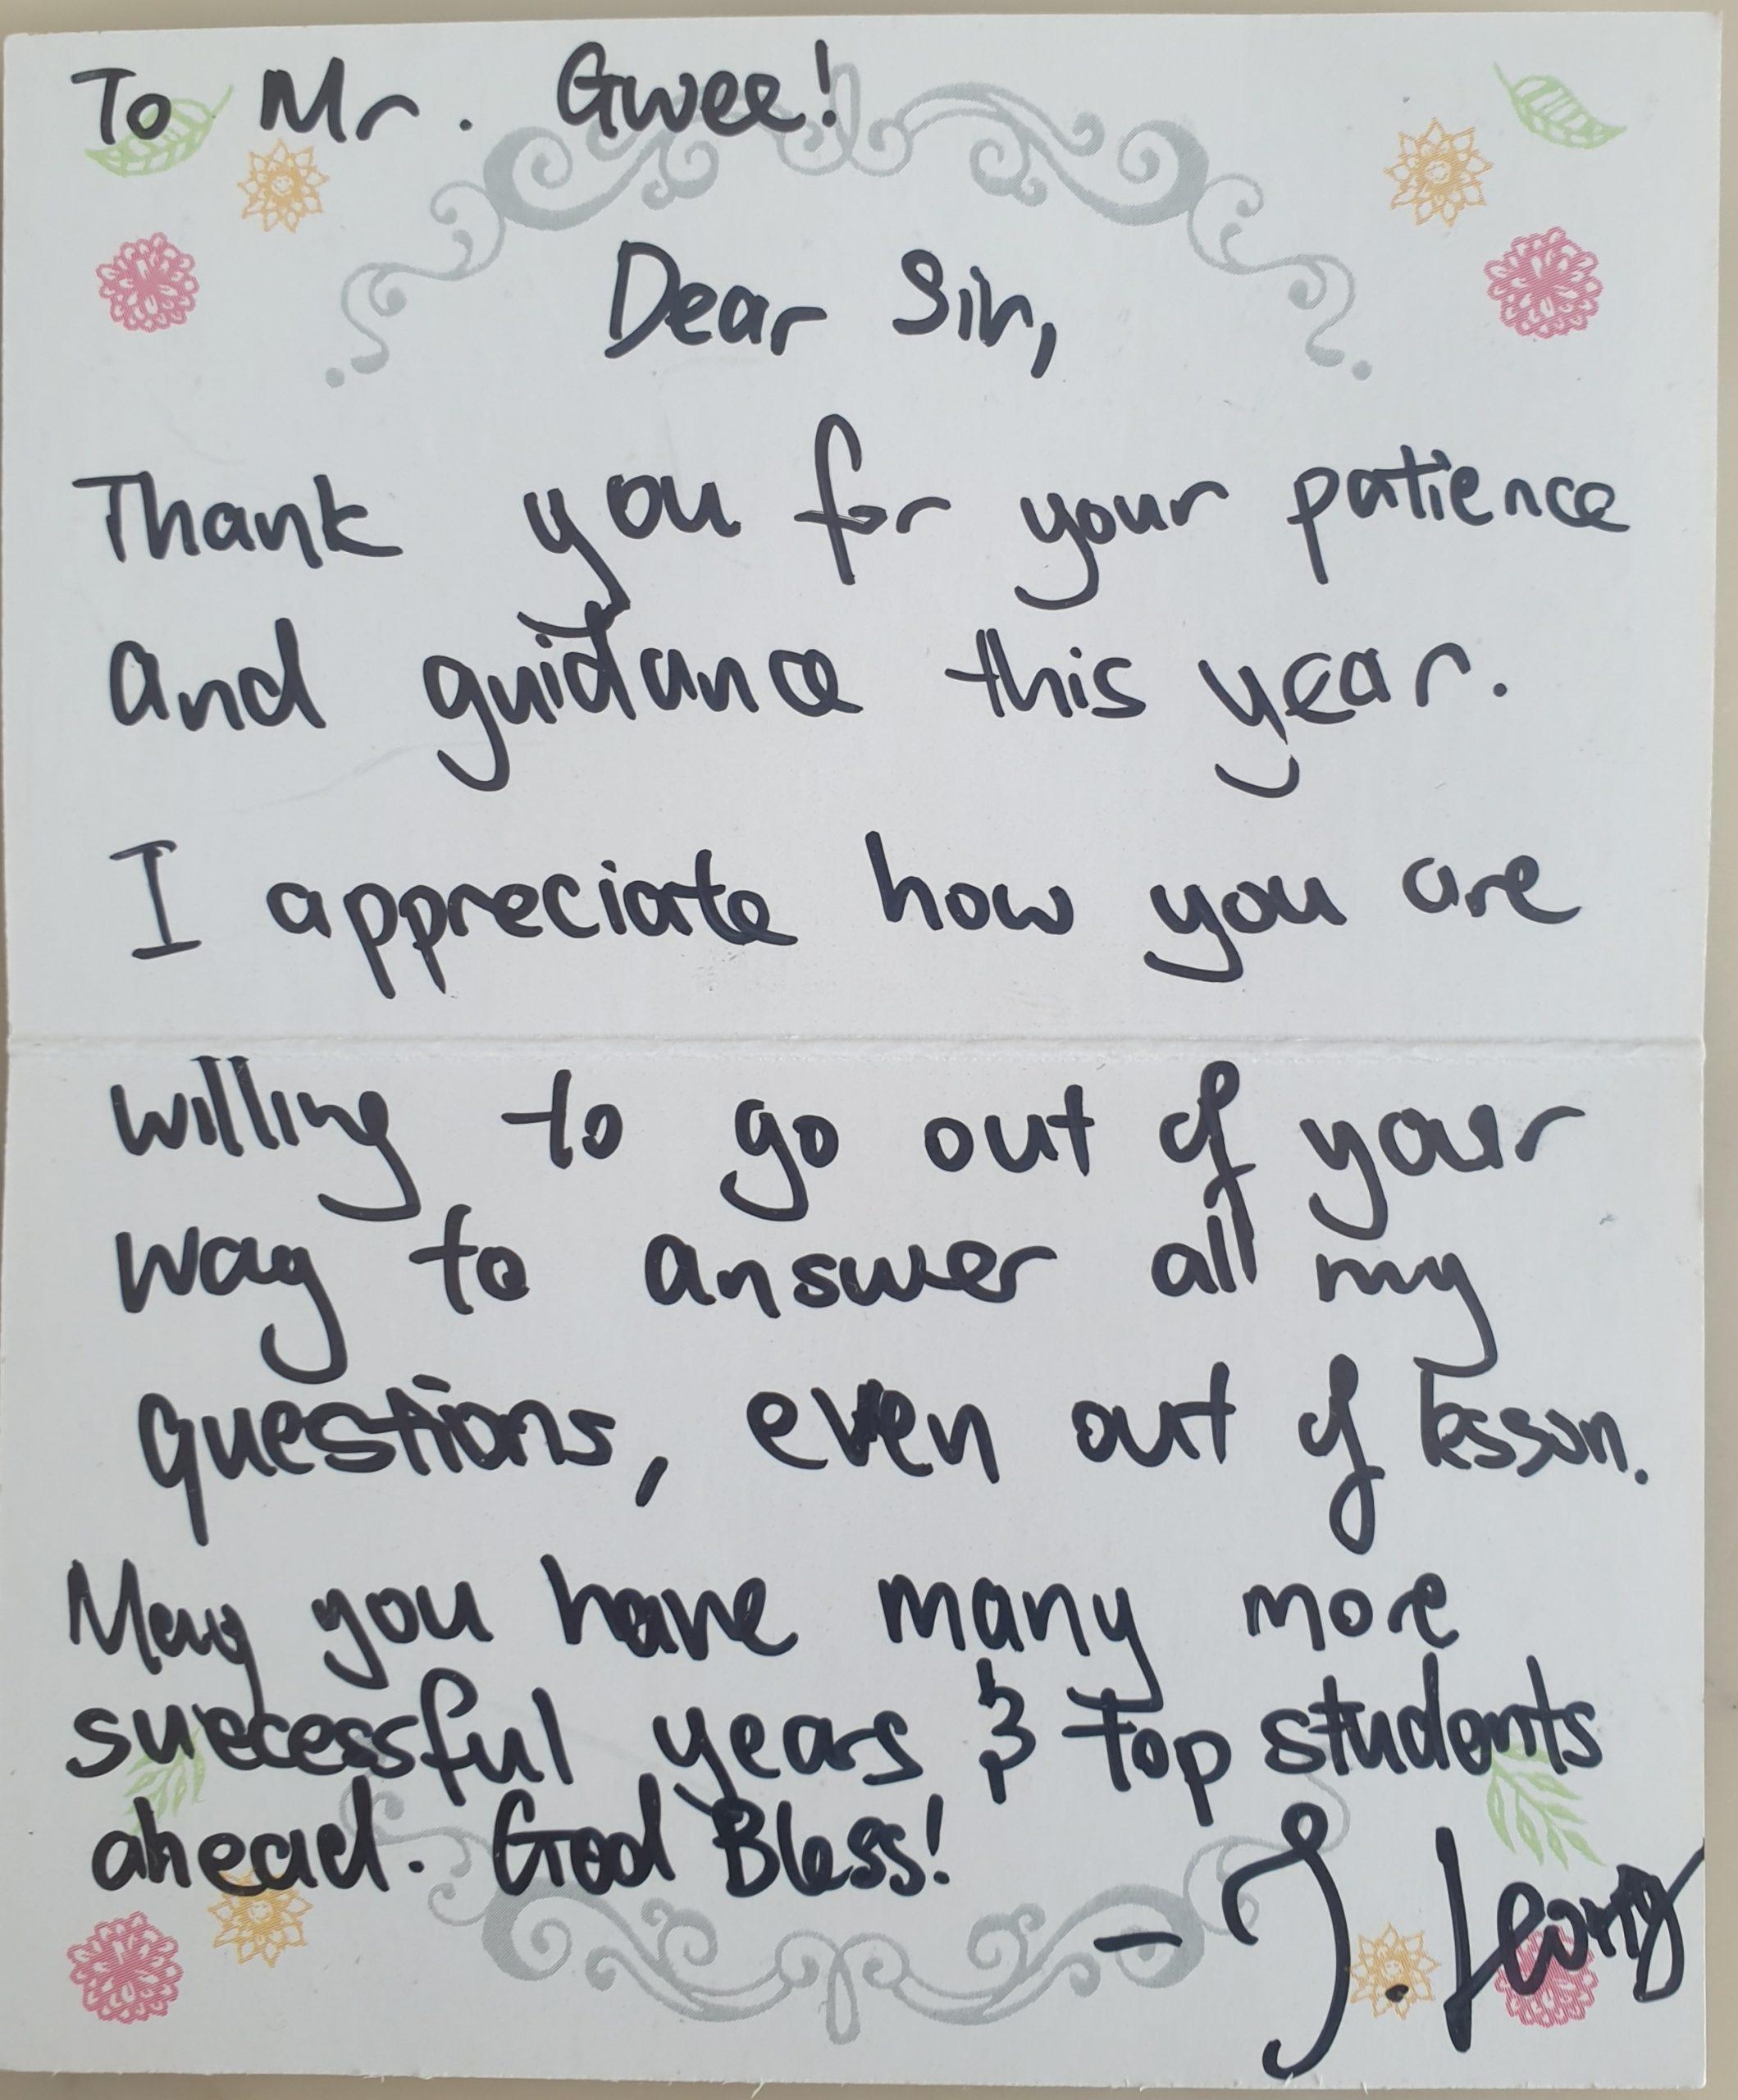 To Mr. Gwee!
Dear Sir,
Thank you for your patience
and guidance this year.
I appreciate how you are
willing to go out of your
way to answer all my
questions, even out of lesson.
May you have many more
successful years & top students
ahead. God Bless!
- J. Leong